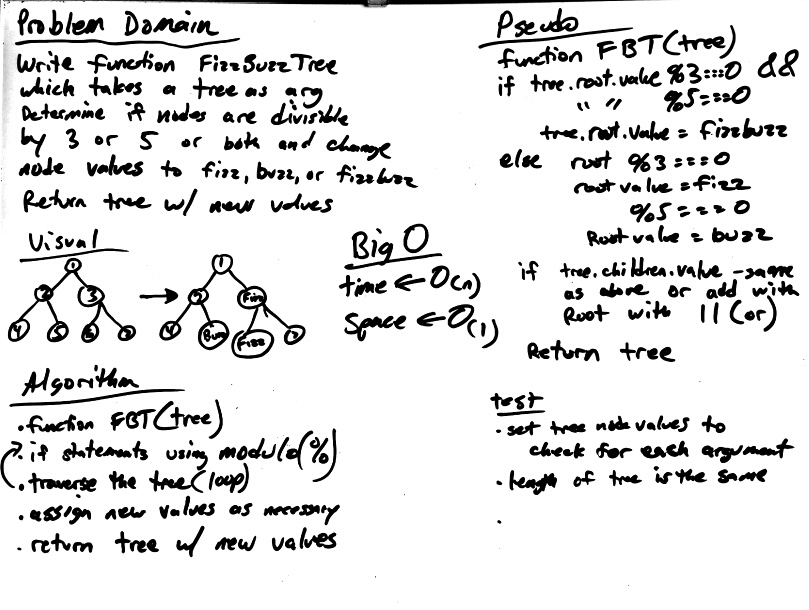 Problem Domain
Write function FizzBuzzTree
which takes a tree as arg
Determine if nodes are divisible
by 3 or 5 or both and change
node values to fizz, buzz, or fizzbuzz
Return tree w/ new values
Visual
1
2
3
4
5
6
7
1
2
Fizz
4
Buzz
Fizz
7
Big O
time ← O(n)
space ← O(1)
Algorithm
. function FBT(tree)
. if statements using modulo(%)
. traverse the tree (loop)
. assign new values as necessary
. return tree w/ new values
Pseudo
function FBT(tree)
if tree.root.value %3===0 &&
" " %5===0
tree.root.value = fizzbuzz
else root %3===0
root value = fizz
%5===0
Root value = buzz
if tree.children.value - same
as above or add with
Root with || (or)
Return tree
test
. set tree node values to
check for each argument
. length of tree is the same
.